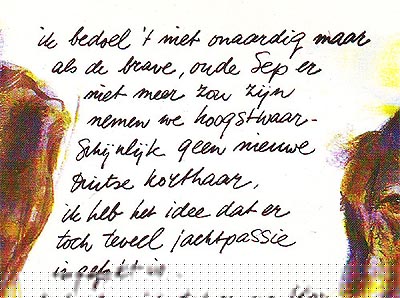 ik bedoel 't niet onaardig maar
als de brave, oude Sep er
niet meer zou zijn
nemen we hoogstwaar-
schijnlijk geen nieuwe
Duitse korthaar,
ik heb het idee dat er
toch teveel jachtpassie
in gefokt is.